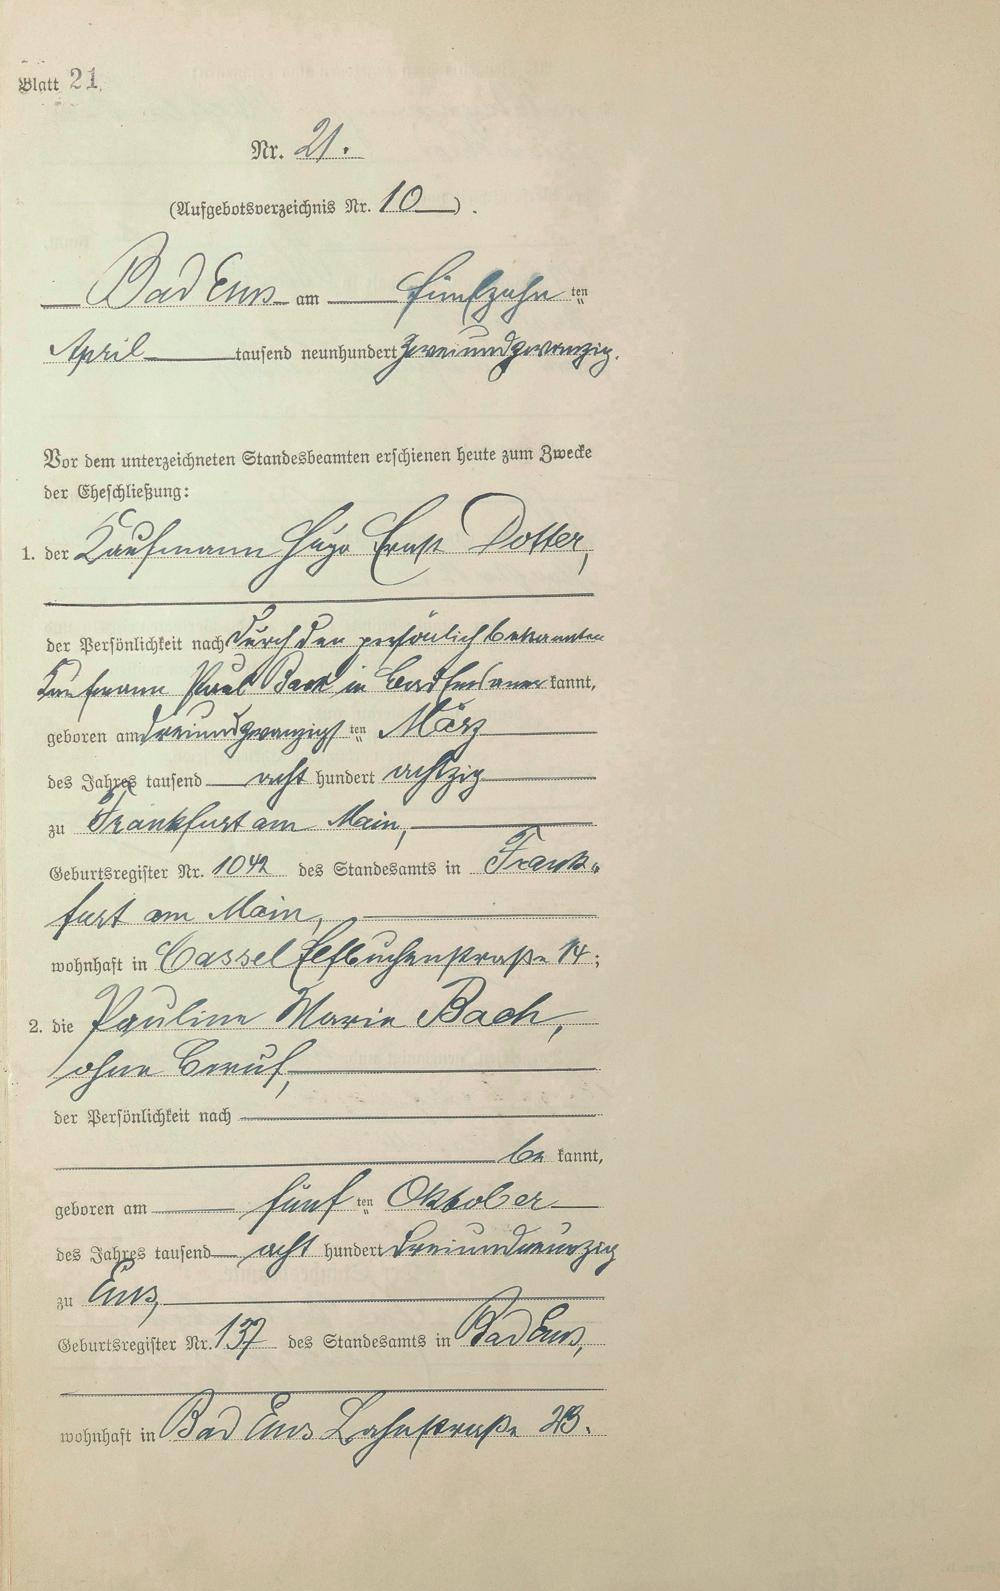 Blatt 21.
Nr. 21.
(Aufgebotsverzeichnis Nr. 10).
Bad Ems am fünfzehn ten
April tausend neunhundert zweiundzwanzig.
Vor dem unterzeichneten Standesbeamten erschienen heute zum Zwecke
der Eheschließung:
1. der Kaufmann Hugo Ernst Dotter,
der Persönlichkeit nach durch den persönlich bekannten
Kaufmann Paul in Bad Ems anerkannt,
geboren am dreiundzwanzigsten März
des Jahres tausend acht hundert achtzig
zu Frankfurt am Main,
Geburtsregister Nr. 1042 des Standesamts in Frank-
furt am Main,
wohnhaft in Cassel Elfbuchenstraße 14;
2. die Pauline Marie Bach,
ohne Beruf,
der Persönlichkeit nach
bekannt,
geboren am fünften Oktober
des Jahres tausend acht hundert dreiundneunzig
zu Ems,
Geburtsregister Nr. 137 des Standesamts in Bad Ems,
wohnhaft in Bad Ems Lahnstraße 23.